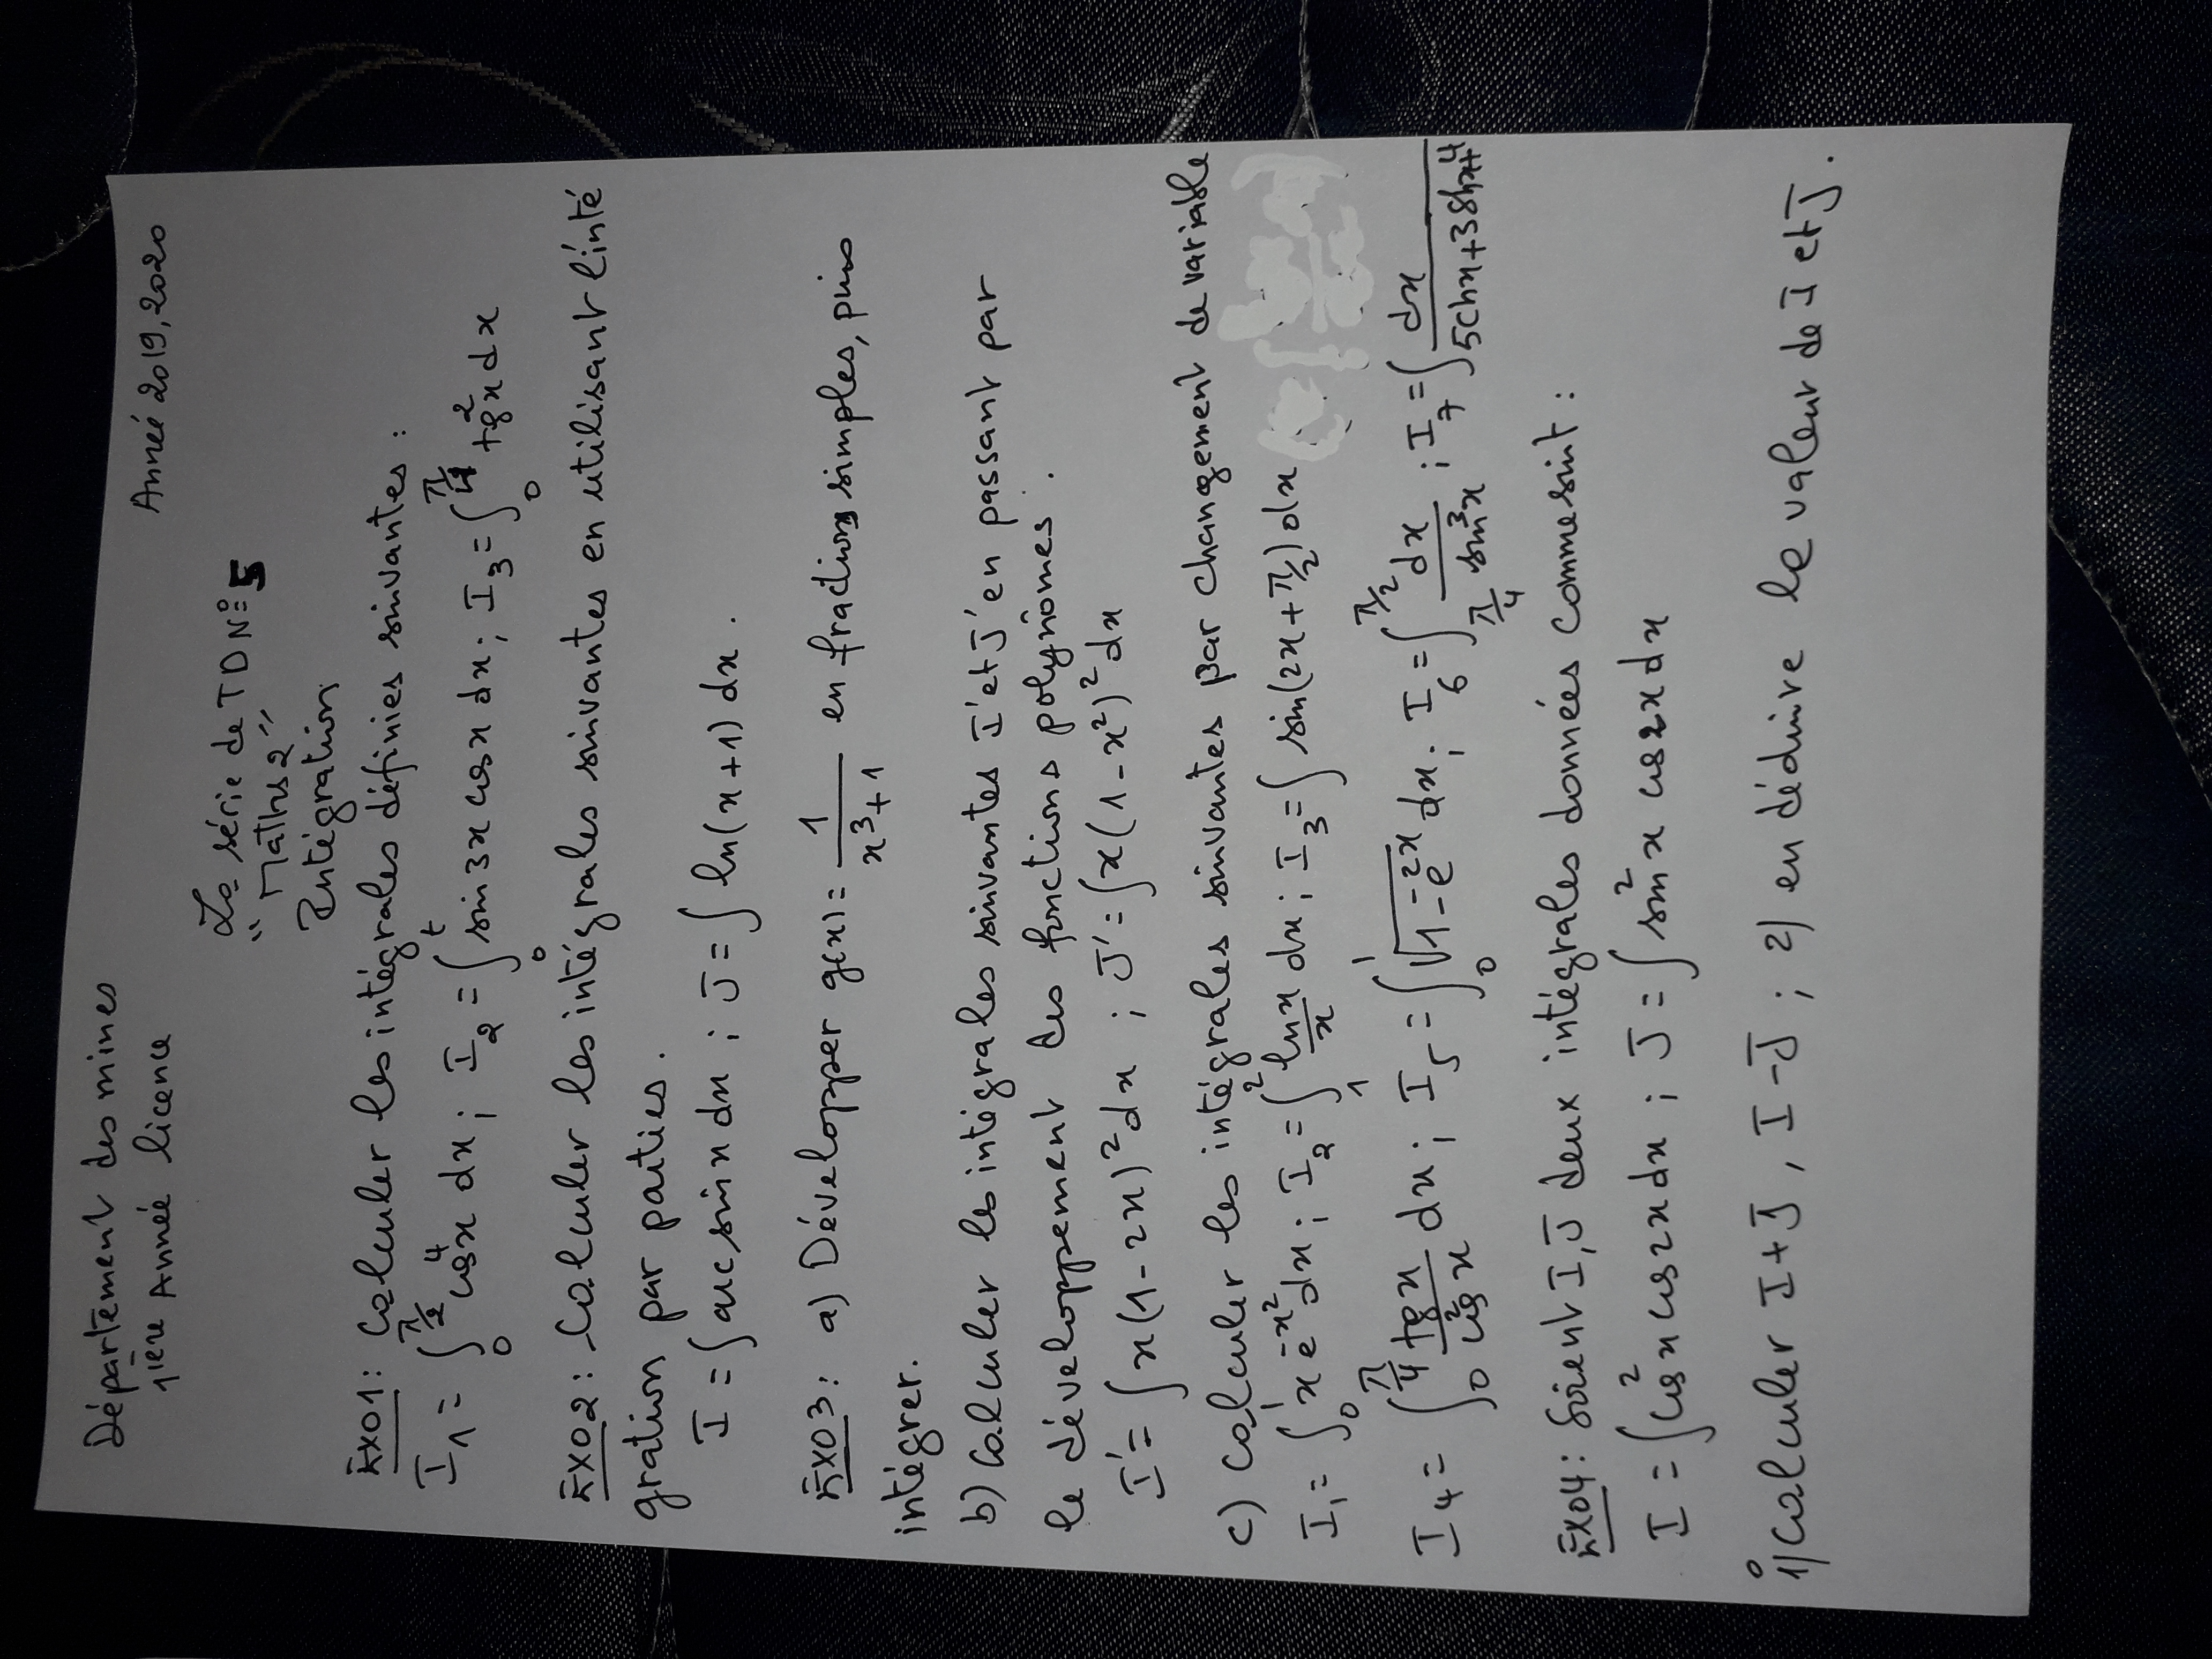 Département des mines
1ière Année licence
Année 2019, 2020
La série de TD N°5
"Maths 2"
Intégration
Exo1: Calculer les intégrales définies suivantes:
I₁ = ∫₀^{π/2} cos⁴x dx ; I₂ = ∫₀^t sin3x cosx dx ; I₃ = ∫₀^{π/4} tg²x dx
Exo2: Calculer les intégrales suivantes en utilisant l'inté
gration par parties.
I = ∫ arcsinx dx ; J = ∫ ln(x+1) dx.
Exo3: a) Développer g(x) = 1/(x³+1) en fractions simples, puis
intégrer.
b) Calculer les intégrales suivantes I' et J' en passant par
le développement des fonctions polynômes.
I' = ∫ x(1-2x)² dx ; J' = ∫ x(1-x²)² dx
c) Calculer les intégrales suivantes par changement de variable
I₁ = ∫₀^1 x e^{-x²} dx ; I₂ = ∫₁^2 lnx/x dx ; I₃ = ∫ sin(2x+π/2) dx
I₄ = ∫₀^{π/4} tgx/cos²x dx ; I₅ = ∫₀^1 √(1-e^{-2x}) dx ; I₆ = ∫_{π/4}^{π/2} dx/sin³x ; I₇ = ∫ dx/(5chx+3shx+4)
Exo4: Soient I, J deux intégrales données comme suit:
I = ∫ cos²x cos2x dx ; J = ∫ sin²x cos2x dx
1°/ Calculer I+J, I-J ; 2) en déduire la valeur de I et J.